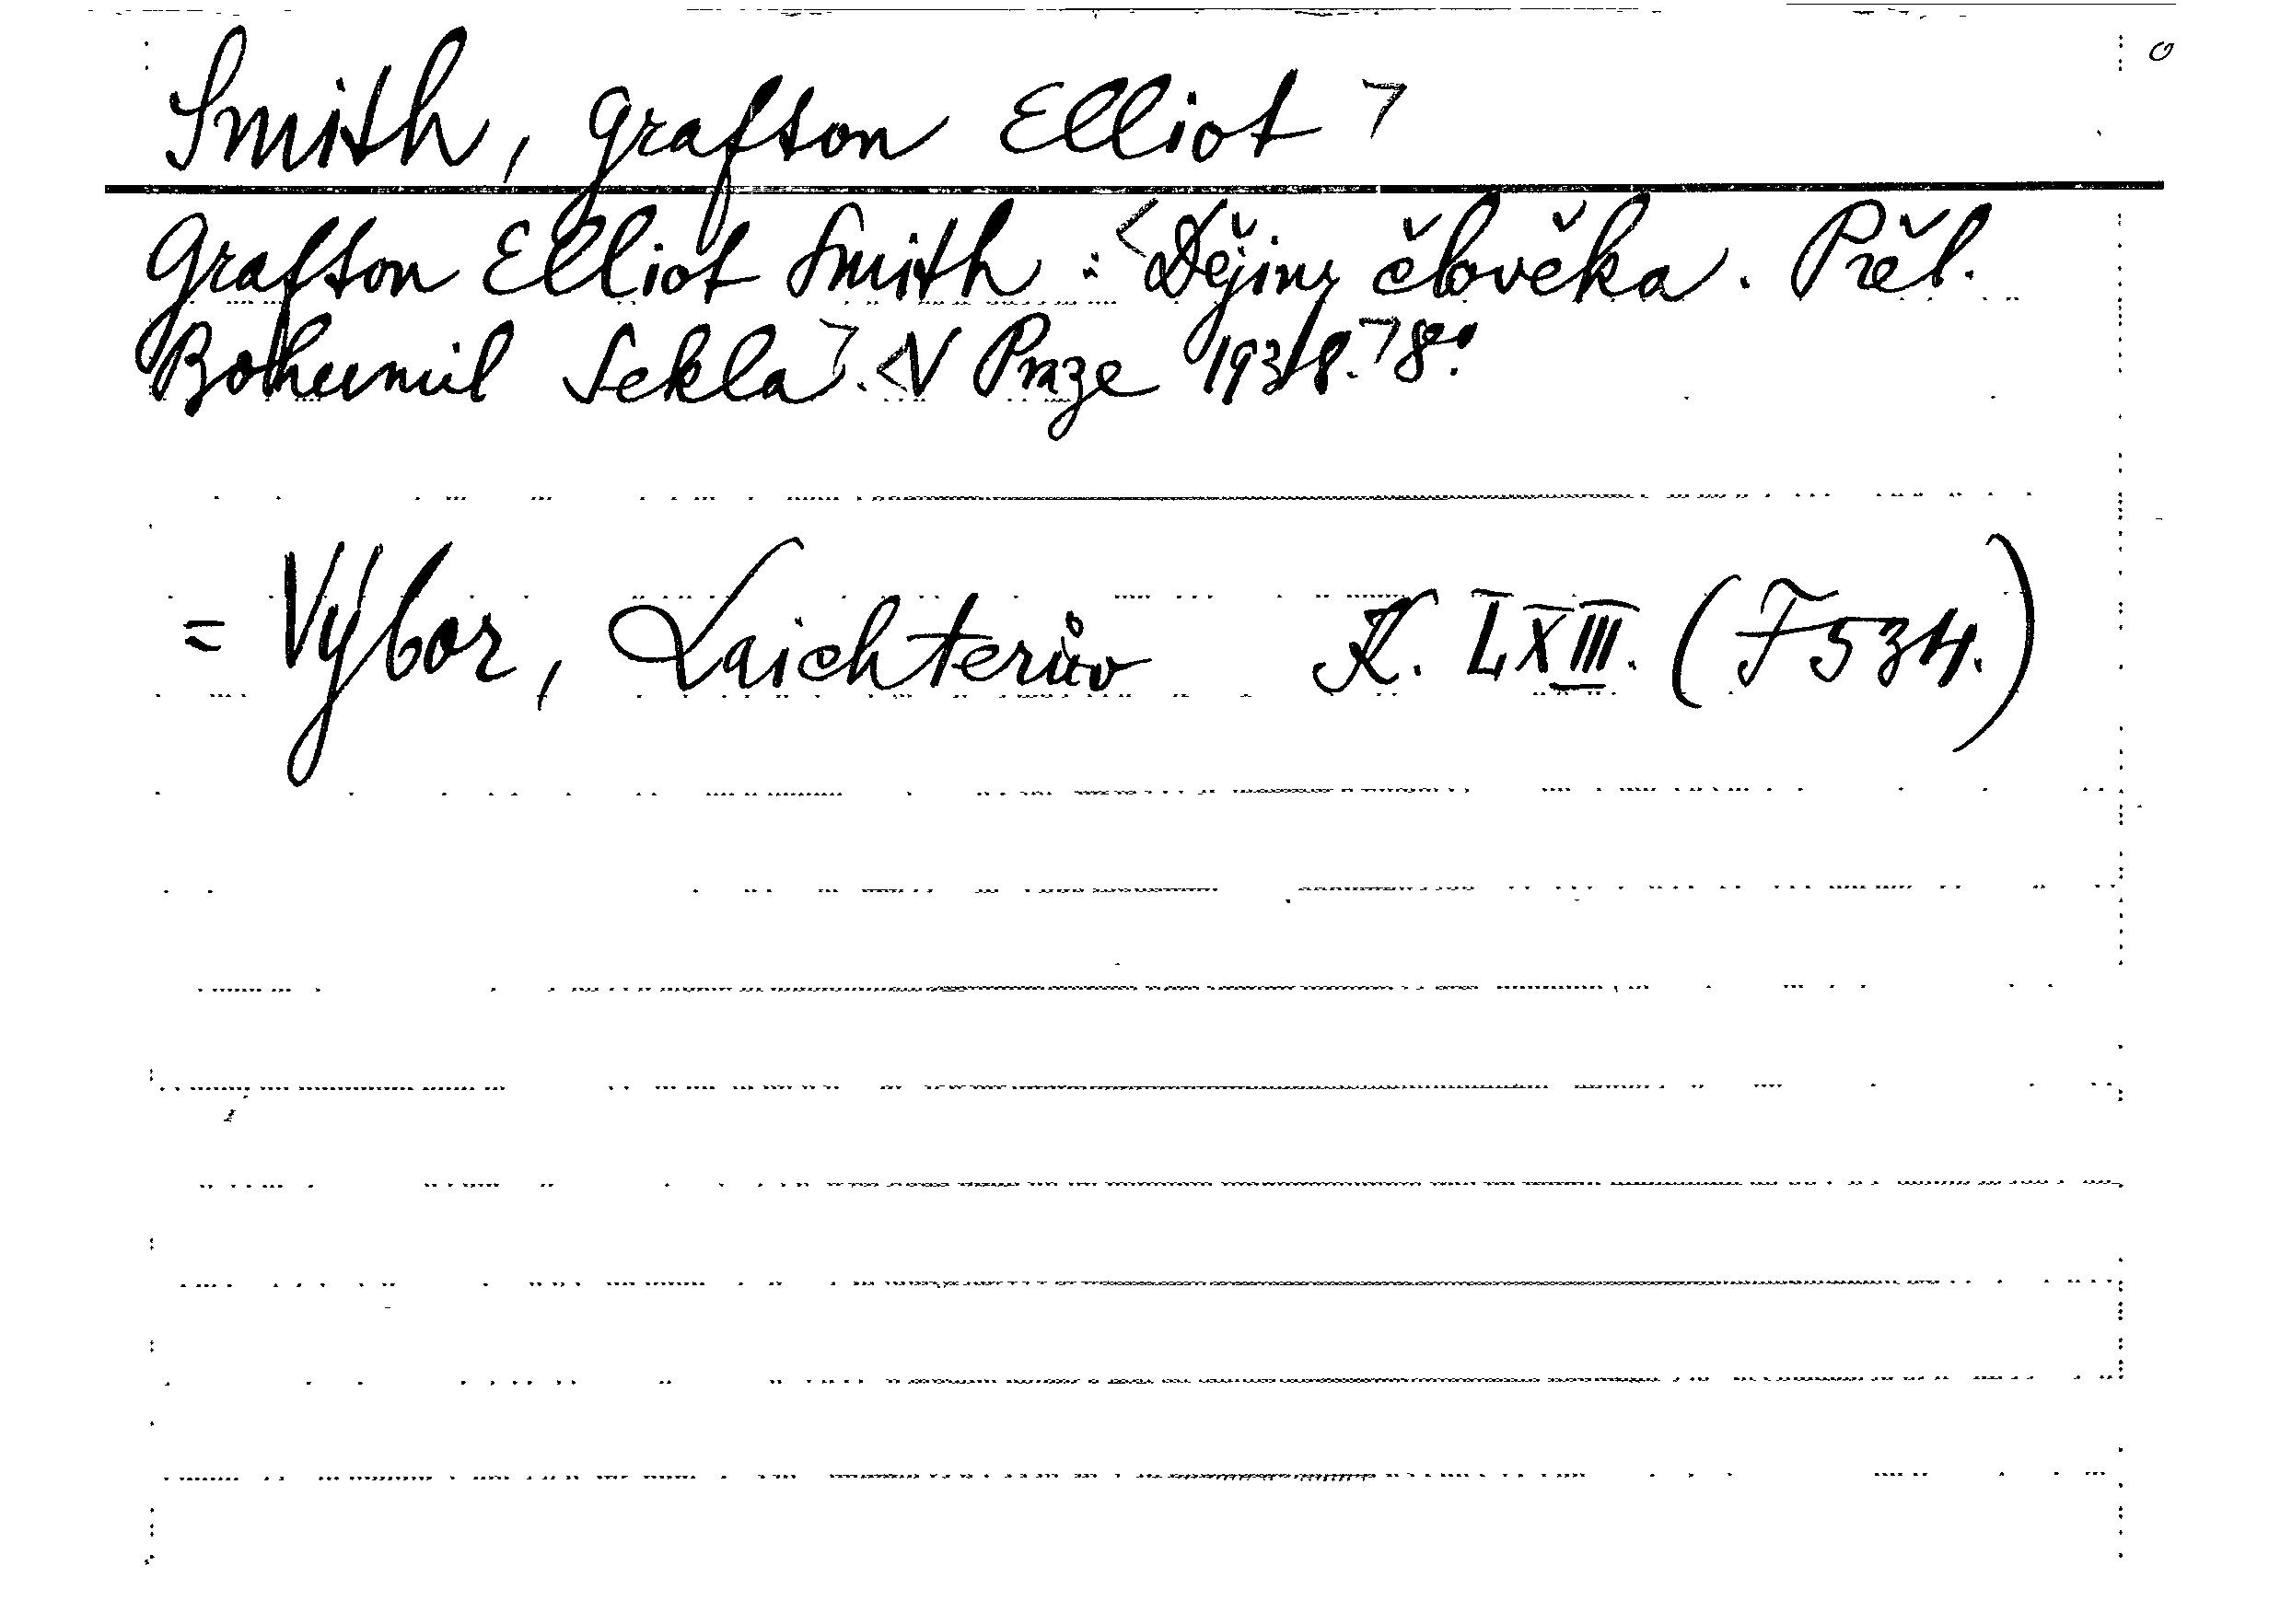 Smith, Grafton Elliot ⌝
Grafton Elliot Smith : <Dějiny člověka. Přel.
Bohumil Sekla⌝. <V Praze 1938.⌝ 8°.
= Výbor, Laichterův K. LXIII. (F 534.)